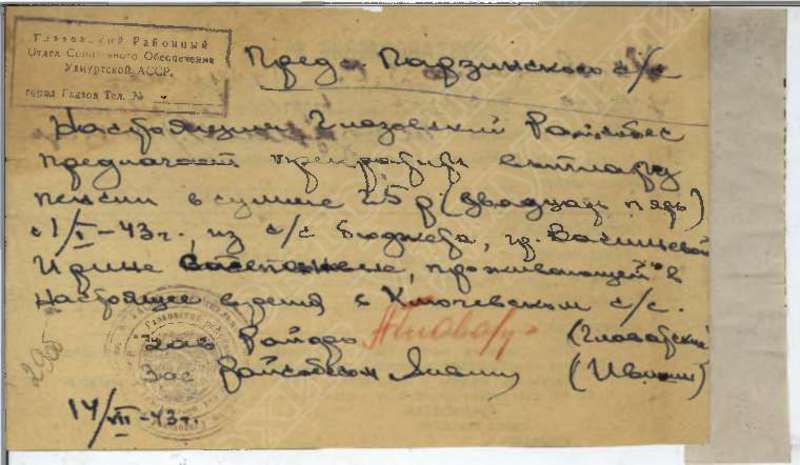 Глазовский Районный
Отдел Социального Обеспечения
Удмуртской АССР.
город Глазов Тел. №
Пред. Падзинского с/с
Настоящим Глазовский Райсобес
предлагает прекратить выплату
пенсии в сумме 25 р (двадцать пять)
с 1/V-43г., из с/с бюджета, гр.
Ирине проживающей в
настоящее время в Ключевском с/с.
Зав Райсобесом (Ившин)
14/VII-43г.
296